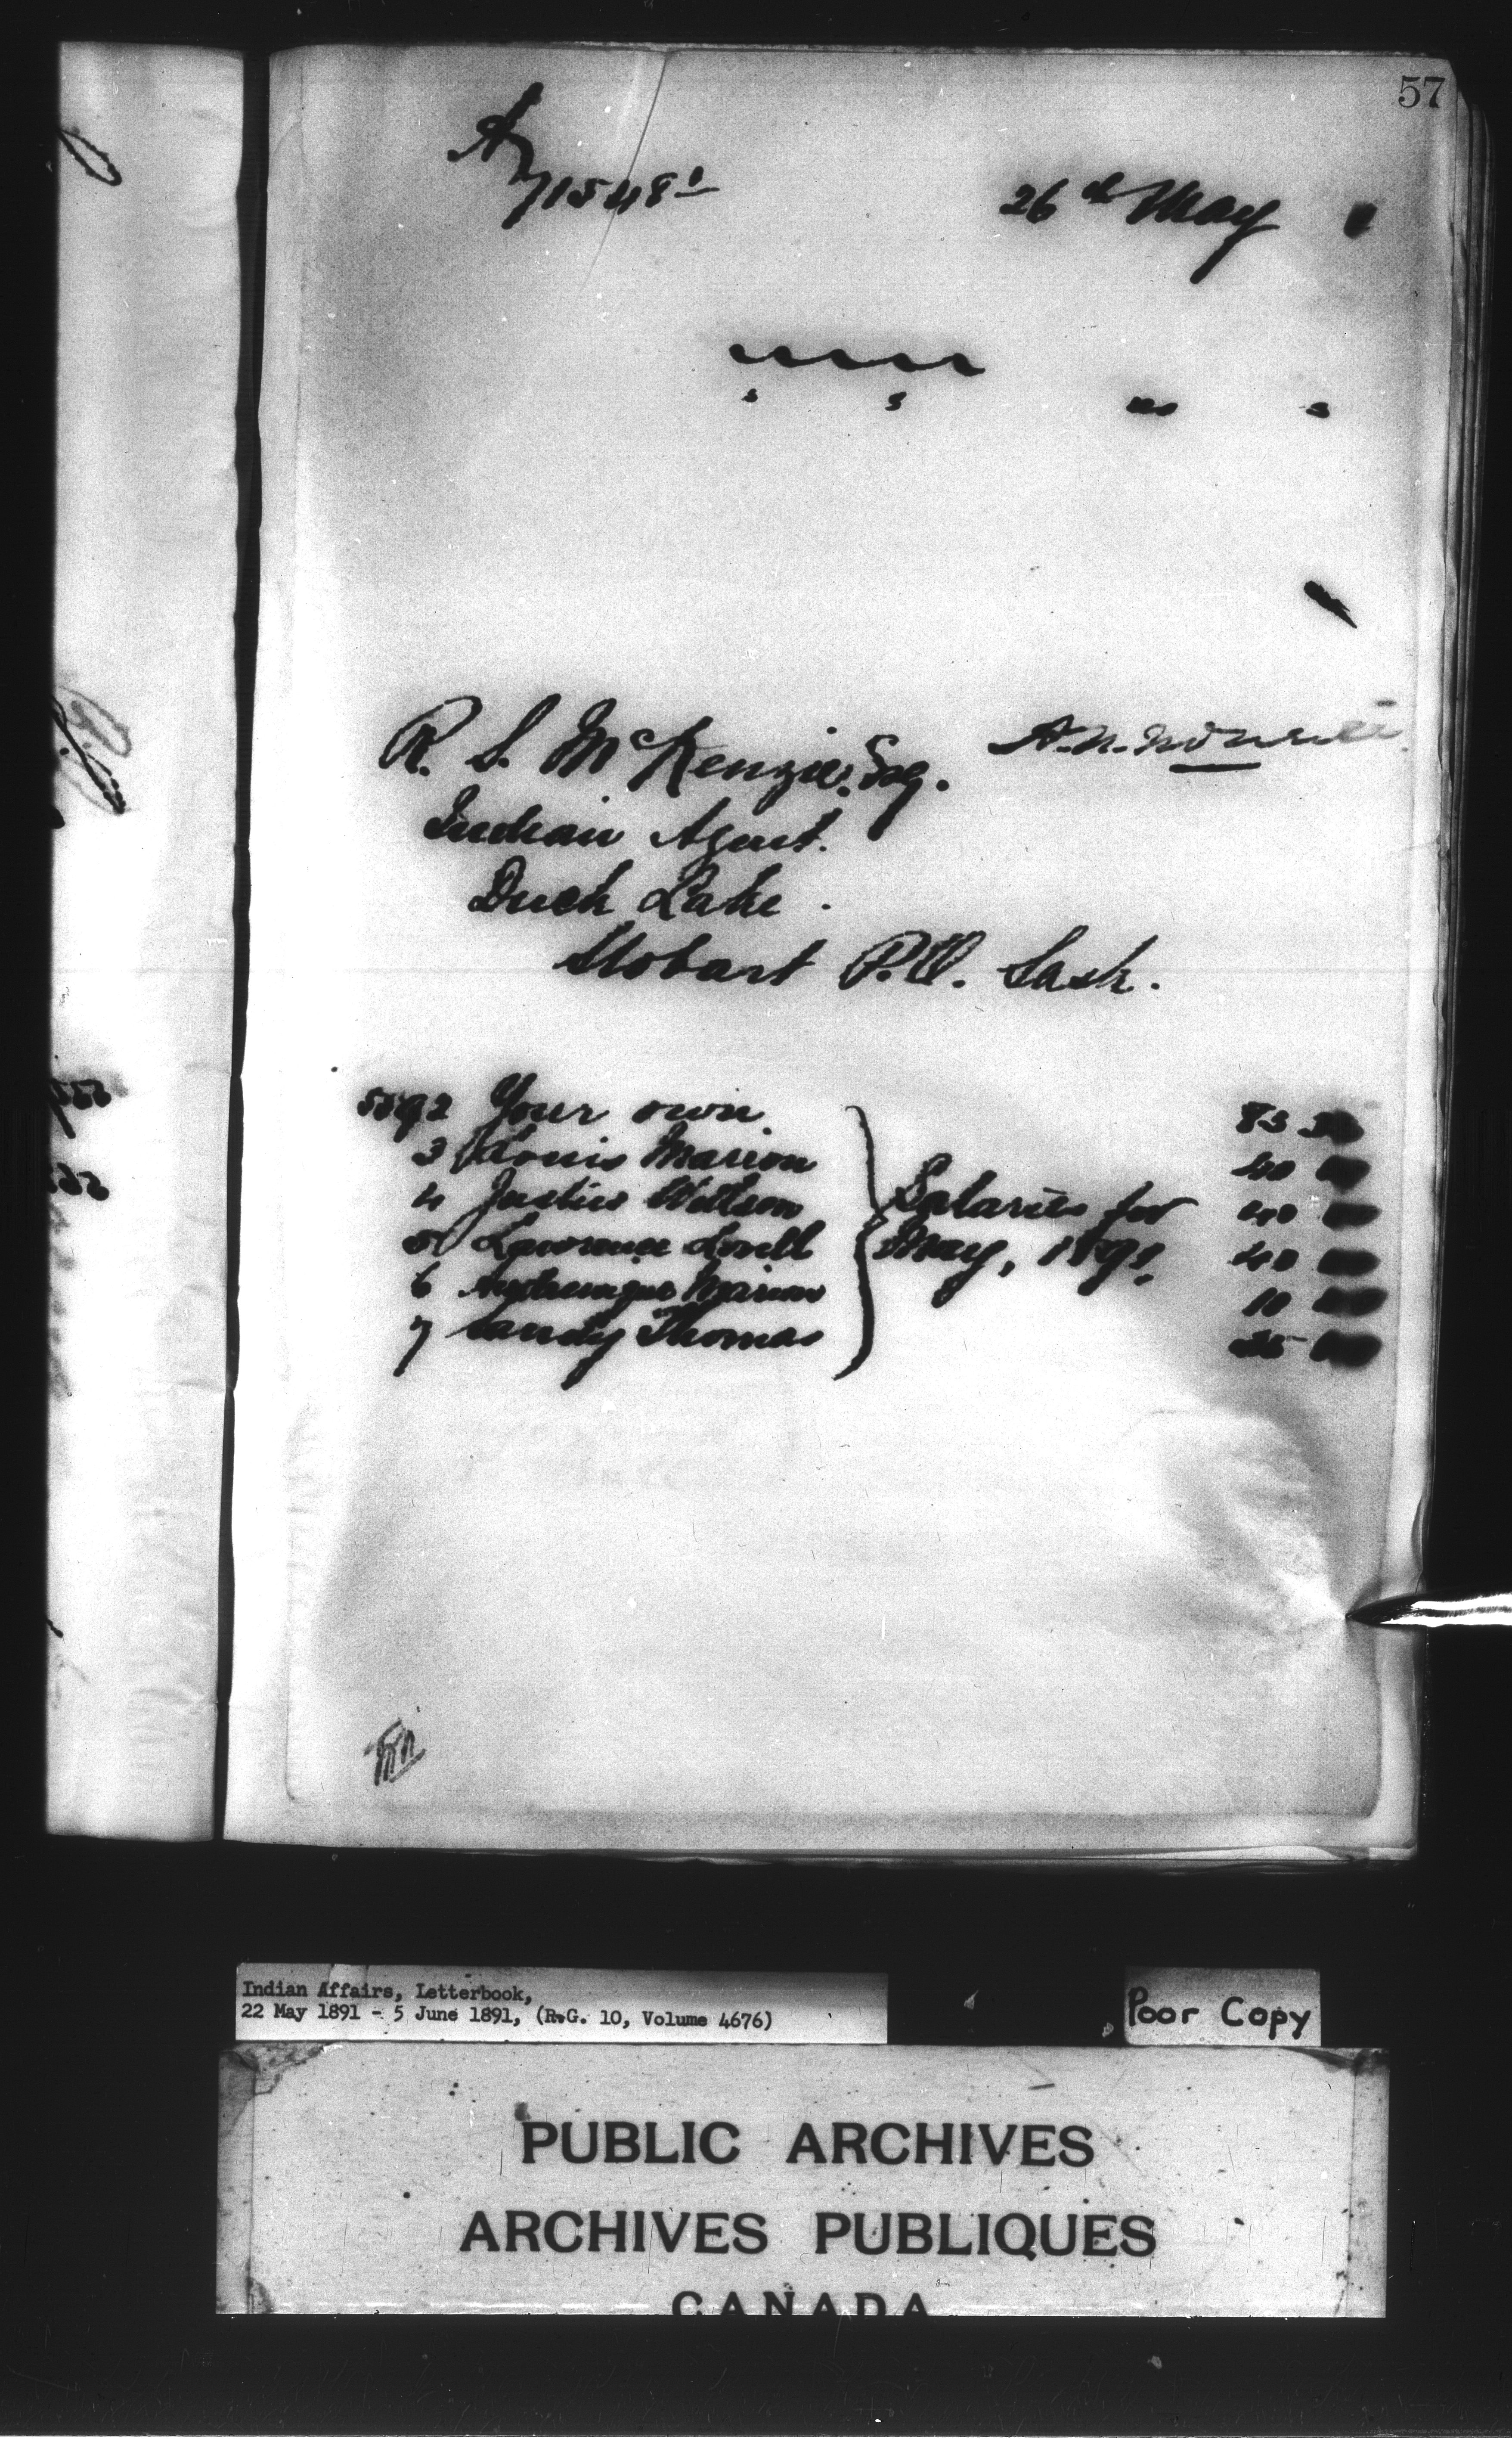 57
A
71548¹
26th May
R. S. McKenzie, Esq.
Indian Agent.
Duck Lake.
Stobart P.O. Sask.
5592 Your own 83
3 Louis Marion 40
4 Justus Willson 40
5 Lawrence Lovell 40
6 Marion 10
7 Sandy Thomas
Salaries for
May, 1891.
Indian Affairs, Letterbook,
22 May 1891 - 5 June 1891, (R.G. 10, Volume 4676)
Poor Copy
PUBLIC ARCHIVES
ARCHIVES PUBLIQUES
CANADA